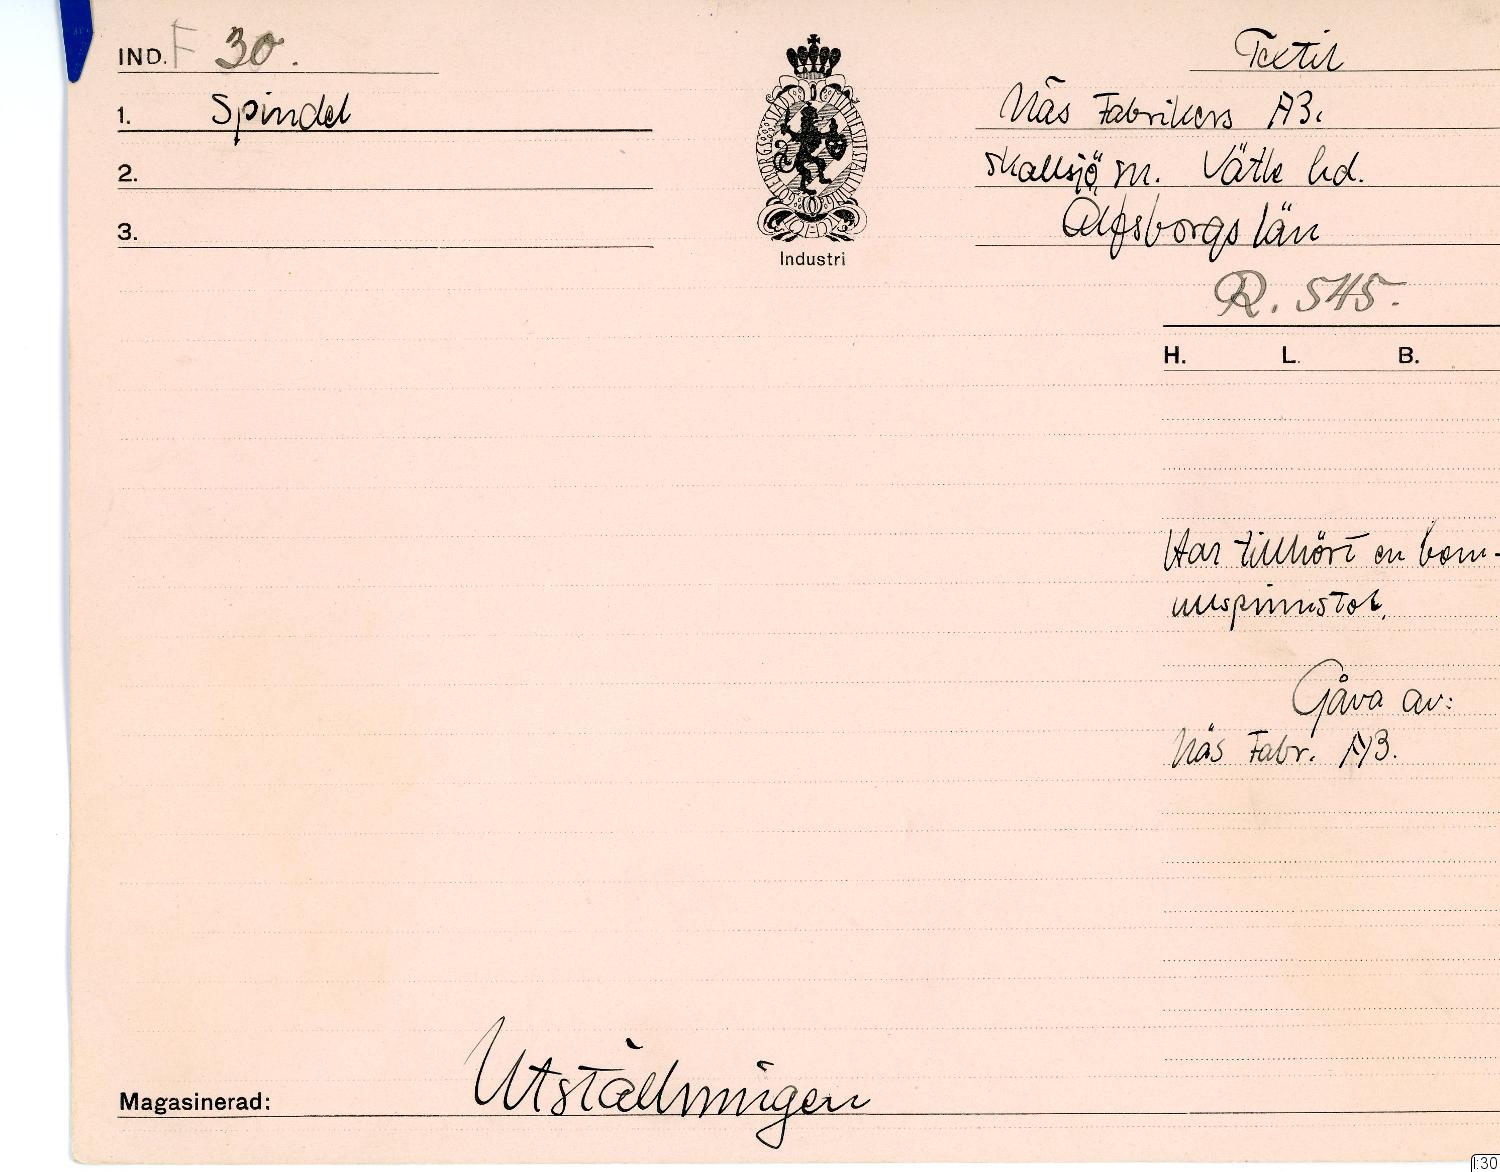 IND. F 30.
Textil
1. Spindel
Näs Fabrikers AB.
2.
Skallsjö sn. Vätle hd.
3.
Älfsborgs län
Industri
R. 545.
H. L. B.
Har tillhört en bom-
ullspinnstol.
Gåva av:
Näs Fabr. AB.
Magasinerad: Utställningen